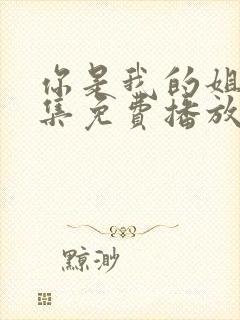 你是我的姐
集免费播放
黥渺